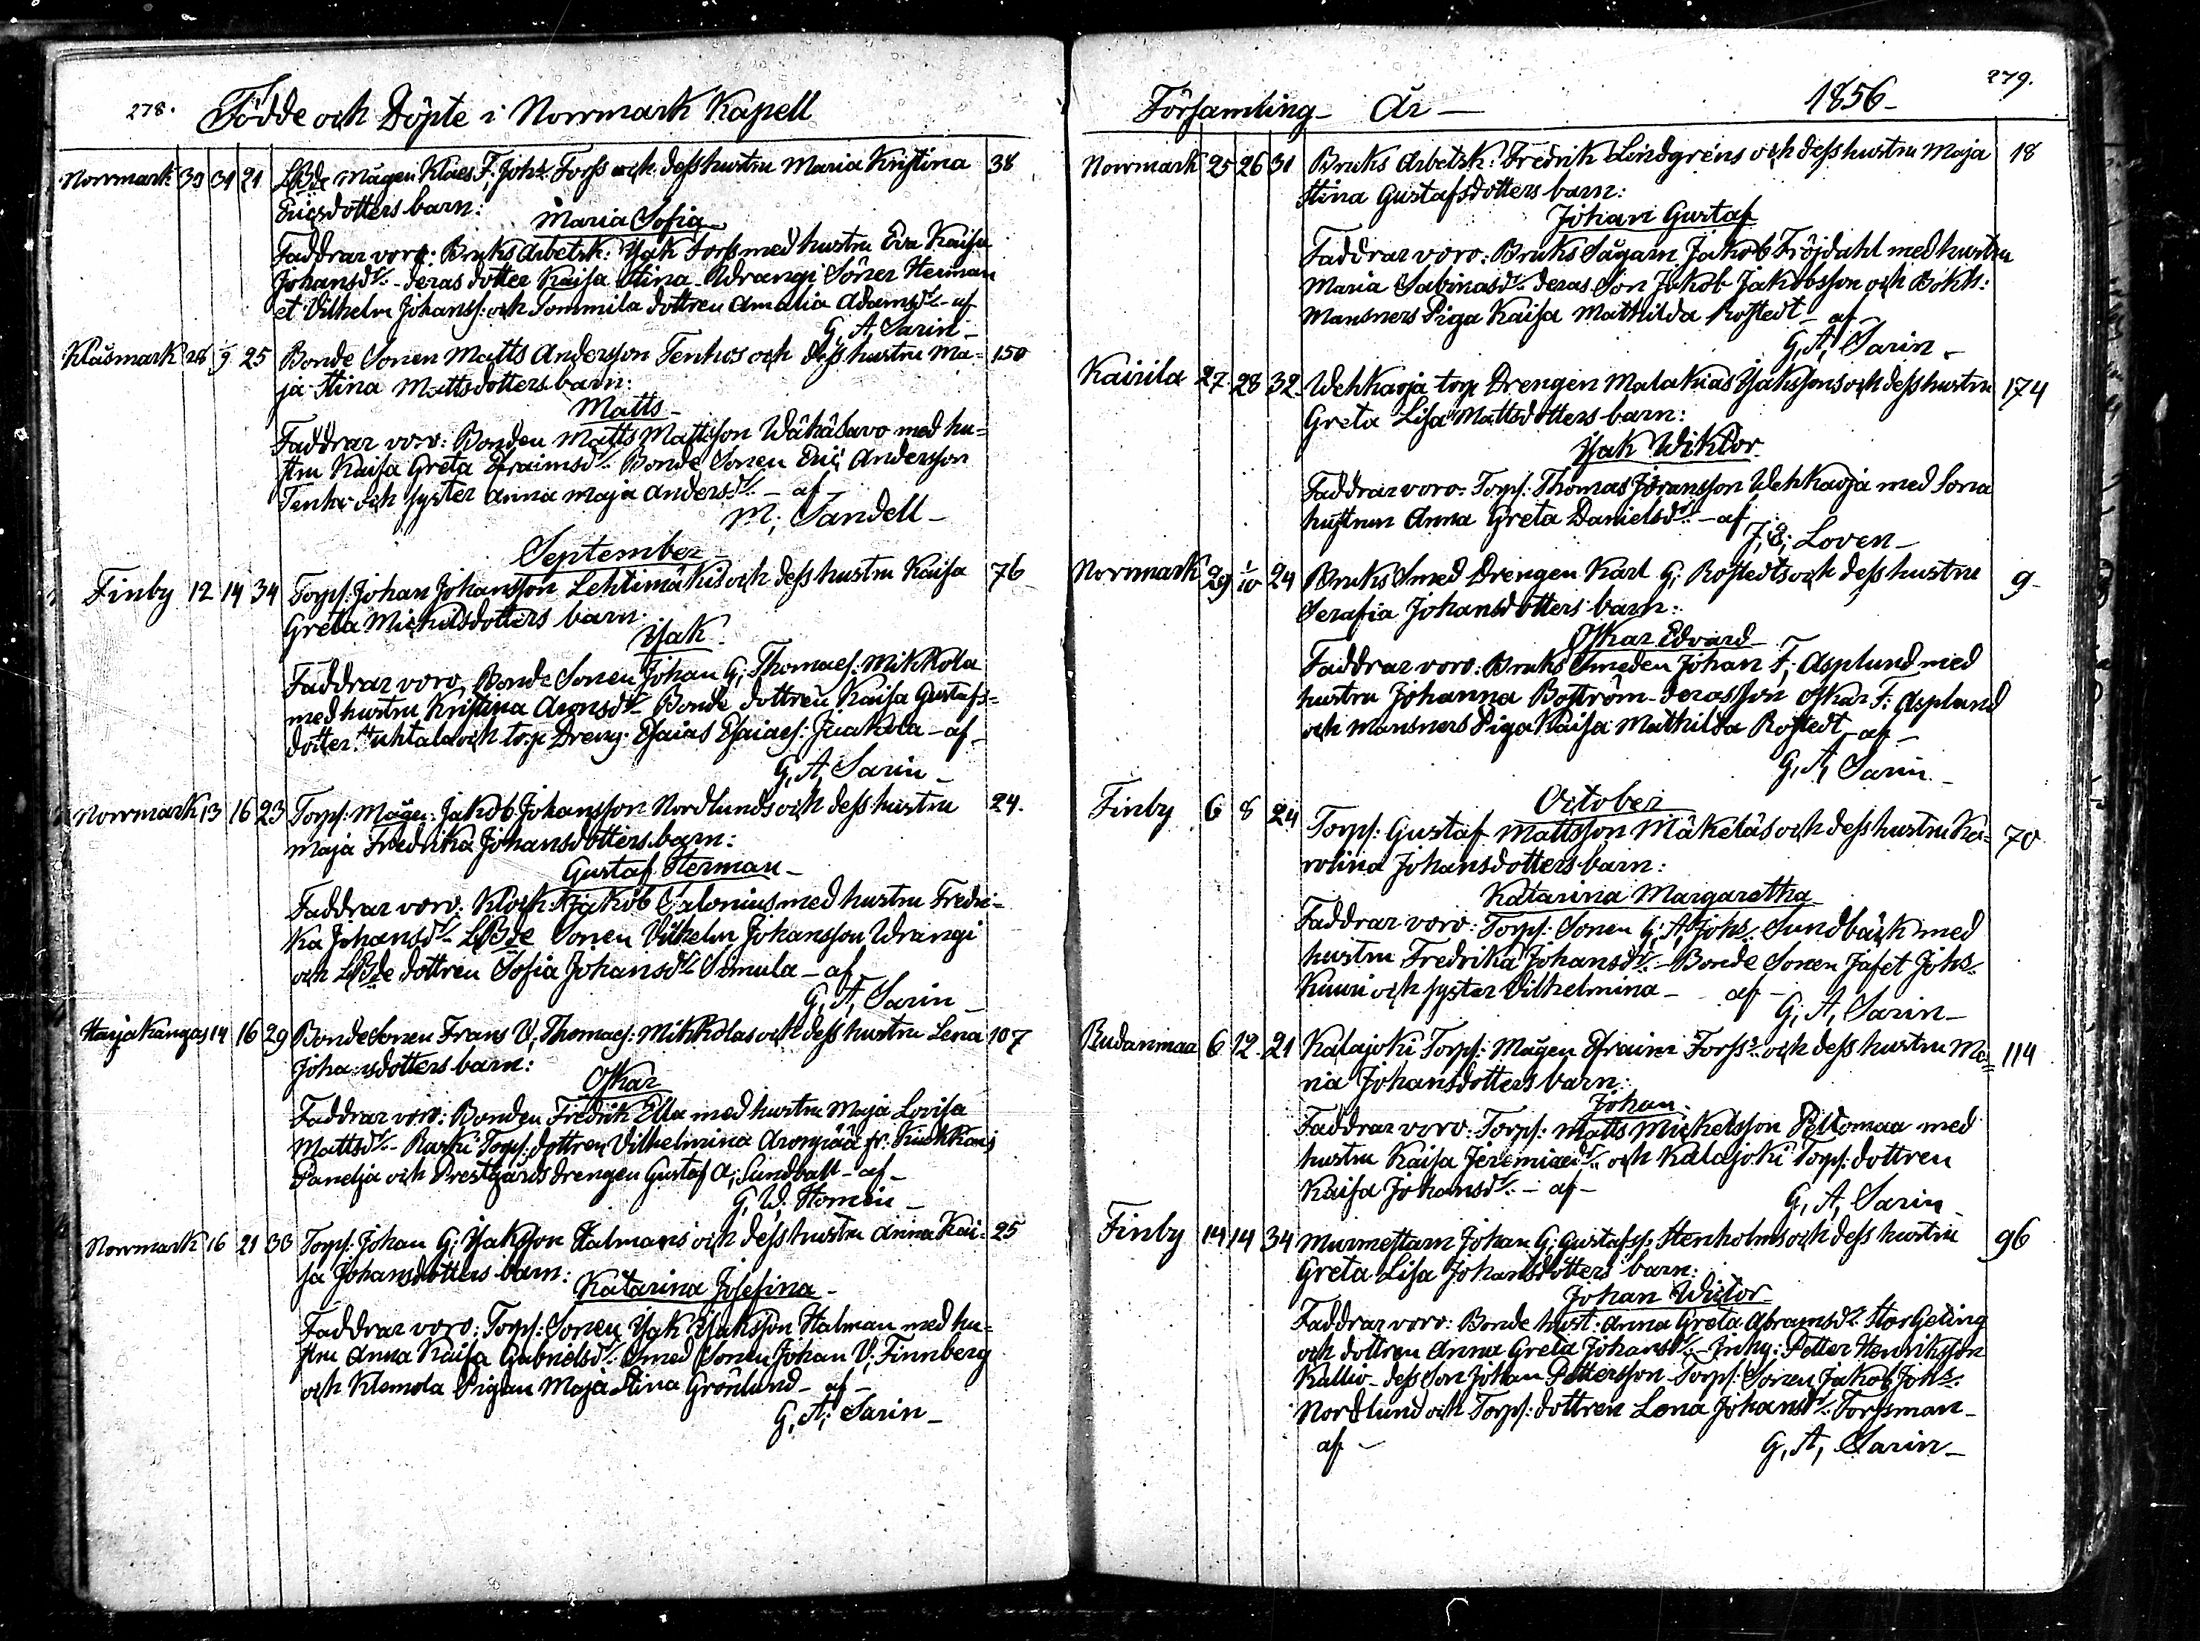 278. Födde och Döpte i Norrmark Kapell
Norrmark 30 31 21 LBde Mågen Klaes F. Johs: Forss och dess hustru Maria Kristina 38
Ericsdotters barn:
Maria Sofia
Faddrar voro: Bruks Arbetsk: Isak Forss med hustru Eva Kaisa
Johansdr: deras dotter Kaisa Stina Wdrangi Söner Herman
et Vilhelm Johanss: och Sommila dottren Amalia Adamsdr: af
G, A, Sarin
Klåsmark 28 1/9 25 Bonde Sonen Matts Andersson Tenhos och dess hustru Ma= 150
ja Stina Mattsdotters barn:
Matts
Faddrar voro: Bonden Matts Mattsson Wähäsavo med hu=
stru Kaisa Greta Efraimsdr: Bonde Sonen Eric Andersson
Tenho och syster Anna Maja Andersdr: af
M, Sandell
September
Finby 12 14 34 Torps: Johan Johansson Lehtimäkis och dess hustru Kaisa 76
Greta Michelsdotters barn:
Isak
Faddrar voro Bonde Sonen Johan G, Thomaes: Mikkola
med hustru Kristina Aronsdr: Bonde dottren Kaisa Gustafs=
dotter och torp Dreng: Esaias Esaiaes: af
G, A, Sarin
Norrmark 13 16 23 Torps: Mågen Jakob Johansson Nordlunds och dess hustru 24.
Maja Fredrika Johansdotters barn:
Gustaf Herman
Faddrar voro: Jakob med hustru Fredri=
ka Johansdr: LBde Sonen Vilhelm Johansson Wdrangi
och LBde dottren Sofia Johansdr: Simula af
G, A, Sarin
Harjakangas 14 16 29 Bonde Sonen Frans V, Thomaes: Mikkolas och dess hustru Lena 107
Johansdotters barn:
Oskar
Faddrar voro: Bonden Fredrik Ella med hustru Maja Lovisa
Mattsdr: Torps: dottren Vilhelmina
Panelja och Prestgårds drengen Gustaf A, Sundvall af
G, W, Homén
Norrmark 16 21 33 Torps: Johan G; Isaksson Halmans och dess hustru Anna Kai= 25
sa Johansdotters barn:
Katarina Josefina
Faddrar voro: Torps: Sonen Isak Isaksson Halman med hu=
stru Anna Kaisa Gabrielsdr: Smed Sonen Johan V, Finnberg
och Klemola Pigan Maja Stina Grönlund af
G, A, Sarin
Församling År 1856 279.
Norrmark 25 26 31 Bruks Arbetsk: Fredrik Lindgréns och dess hustru Maja 18
Stina Gustafsdotters barn:
Johan Gustaf
Faddrar voro: Bruks Sågarn Jakob Fröjdahl med hustru
Maria Sabinasdr: deras Son Jakob Jakobsson och Bokh:
Mansners Piga Kaisa Mathilda Rostedt af
G, A, Sarin
Kairila 27 28 32 Wehkaoja torp Drengen Malakias Isakssons och dess hustru 174
Greta Lisa Mattsdotters barn:
Isak Wiktor
Faddrar voro: Torps: Thomas Göransson Wehkaoja med Sona
hustrun Anna Greta Danielsdr: af
J, E, Loven
Norrmark 29 1/10 24 Bruks Smed Drengen Karl G, Rostedts och dess hustru 9
Serafia Johansdotters barn:
Oskar Edvard
Faddrar voro: Bruks Smeden Johan F, Asplund med
hustru Johanna Boström deras Son Oskar F. Asplund
och Mansners Piga Kaisa Mathilda Rostedt af
G, A, Sarin
October
Finby 6 8 24 Torps: Gustaf Mattsson Mäkeläs och dess hustru Ka= 70
rolina Johansdotters barn:
Katarina Margaretha
Faddrar voro: Torps: Sonen G, A, Johs: Sundbäck med
hustru Fredrika Johansdr: Bonde Sonen Jafet Johs:
och syster Vilhelmina af
G, A, Sarin
Rudanmaa 6 12 21 Kalajoki Torps: Mågen Efraim Forss: och dess hustru Ma= 114
ria Johansdotters barn:
Johan
Faddrar voro: Torps: Matts Mickelsson Peltomaa med
hustru Kaisa Jeremiaedr: och Kalajoki Torps: dottren
Kaisa Johansdr: af
G, A, Sarin
Finby 14 14 34 Murmestarn Johan G; Gustafss: Stenholms och dess hustru 96
Greta Lisa Johansdotters barn:
Johan Wictor
Faddrar voro: Bonde hust: Anna Greta Abramsdr: StorGeting
och dottren Anna Greta Johansdr: Inhy: Petter Henriksson
Kallio dess Son Johan Pettersson Torps: Sonen Jakob Johs:
Nordlund och Torps: dottren Lena Johansdr: Forssman
af G, A, Sarin